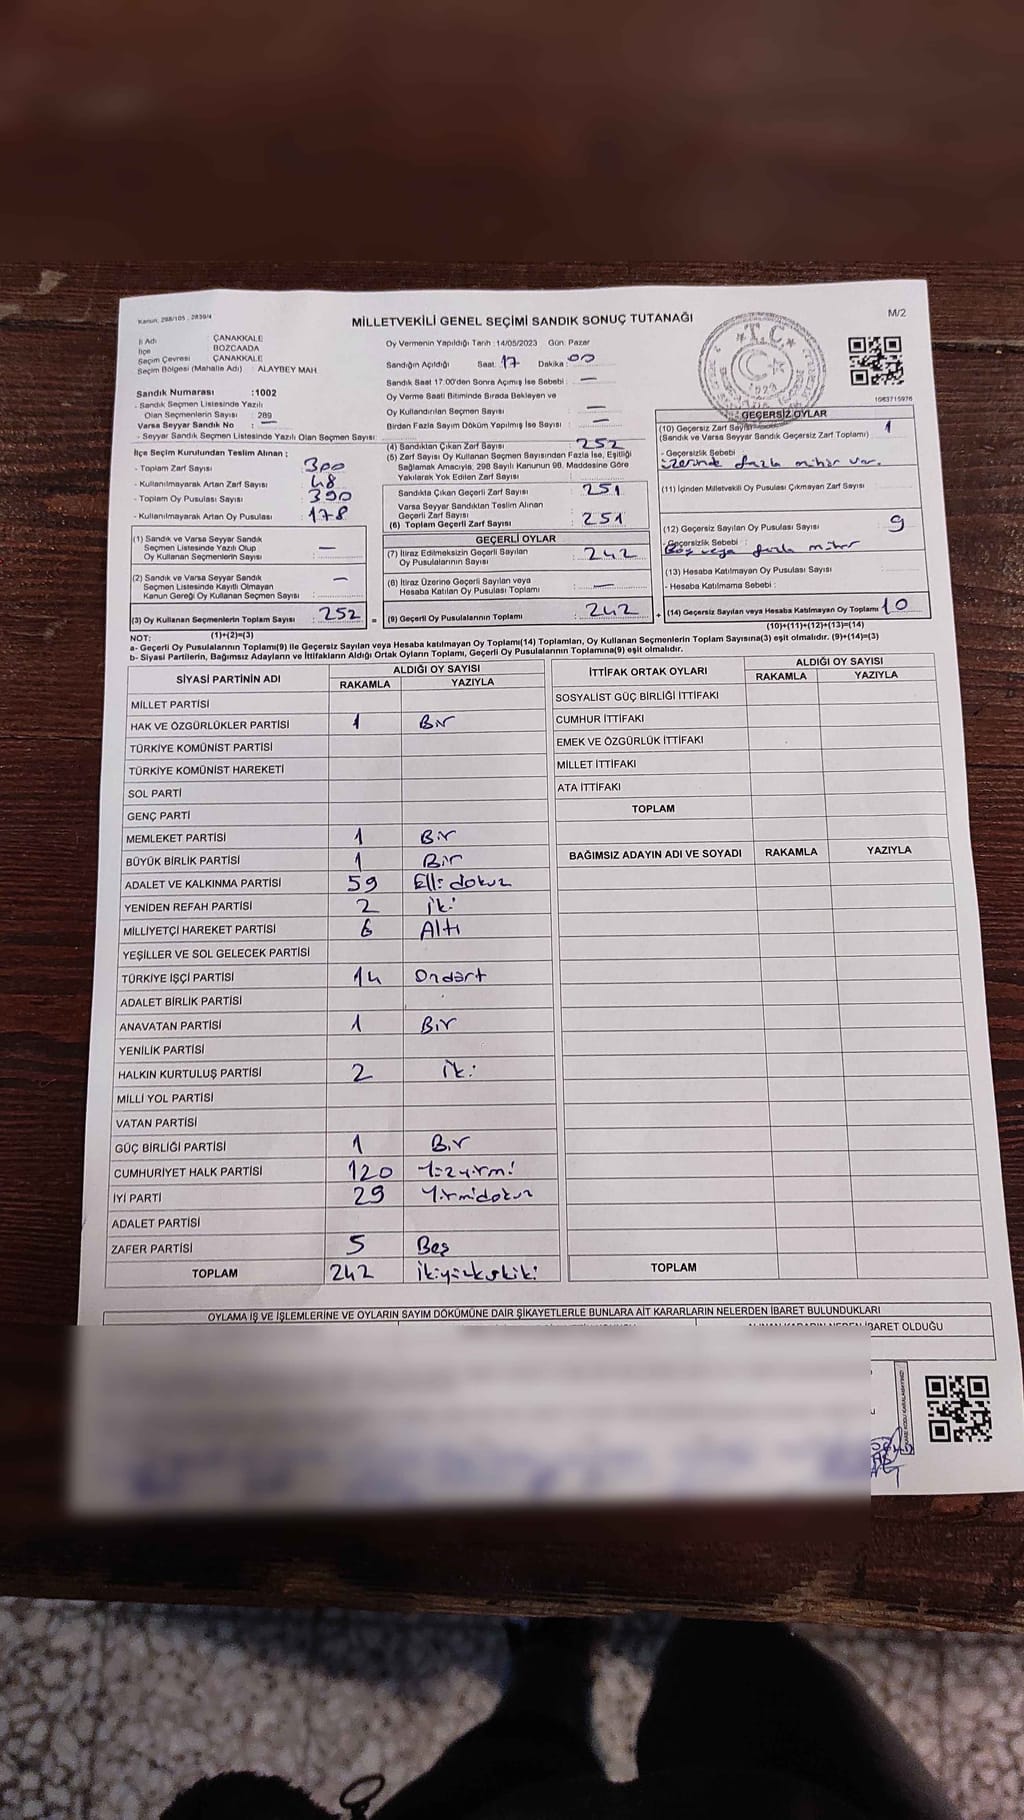 Kanun, 298/105 - 2839/4
MİLLETVEKİLİ GENEL SEÇİMİ SANDIK SONUÇ TUTANAĞI
M/2
İl Adı : ÇANAKKALE
İlçe : BOZCAADA
Seçim Çevresi : ÇANAKKALE
Seçim Bölgesi (Mahalle Adı) : ALAYBEY MAH.
Sandık Numarası :1002
- Sandık Seçmen Listesinde Yazılı
Olan Seçmenlerin Sayısı : 289
Varsa Seyyar Sandık No : —
- Seyyar Sandık Seçmen Listesinde Yazılı Olan Seçmen Sayısı:
İlçe Seçim Kurulundan Teslim Alınan ;
- Toplam Zarf Sayısı : 300
- Kullanılmayarak Artan Zarf Sayısı : 48
- Toplam Oy Pusulası Sayısı : 390
- Kullanılmayarak Artan Oy Pusulası : 178
(1) Sandık ve Varsa Seyyar Sandık
Seçmen Listesinde Yazılı Olup
Oy Kullanan Seçmenlerin Sayısı : —
(2) Sandık ve Varsa Seyyar Sandık
Seçmen Listesinde Kayıtlı Olmayan
Kanun Gereği Oy Kullanan Seçmen Sayısı : —
(3) Oy Kullanan Seçmenlerin Toplam Sayısı : 252 =
(1)+(2)=(3)
Oy Vermenin Yapıldığı Tarih : 14/05/2023 Gün: Pazar
Sandığın Açıldığı Saat: 17 Dakika: 00
Sandık Saat 17:00'den Sonra Açımış İse Sebebi : —
Oy Verme Saati Bitiminde Sırada Bekleyen ve
Oy Kullandırılan Seçmen Sayısı : —
Birden Fazla Sayım Döküm Yapılmış İse Sayısı : —
(4) Sandıktan Çıkan Zarf Sayısı : 252
(5) Zarf Sayısı Oy Kullanan Seçmen Sayısından Fazla İse, Eşitliği
Sağlamak Amacıyla, 298 Sayılı Kanunun 98. Maddesine Göre
Yakılarak Yok Edilen Zarf Sayısı :
Sandıkta Çıkan Geçerli Zarf Sayısı : 251
Varsa Seyyar Sandıktan Teslim Alınan
Geçerli Zarf Sayısı :
(6) Toplam Geçerli Zarf Sayısı : 251
GEÇERLİ OYLAR
(7) İtiraz Edilmeksizin Geçerli Sayılan
Oy Pusulalarının Sayısı : 242
(8) İtiraz Üzerine Geçerli Sayılan veya
Hesaba Katılan Oy Pusulası Toplamı : —
(9) Geçerli Oy Pusulalarının Toplamı : 242 +
T.C.
1063715976
GEÇERSİZ OYLAR
(10) Geçersiz Zarf Sayısı : 1
(Sandık ve Varsa Seyyar Sandık Geçersiz Zarf Toplamı)
- Geçersizlik Sebebi :
üzerinde fazla mühür var.
(11) İçinden Milletvekili Oy Pusulası Çıkmayan Zarf Sayısı
(12) Geçersiz Sayılan Oy Pusulası Sayısı : 9
- Geçersizlik Sebebi :
Boş veya fazla mühür
(13) Hesaba Katılmayan Oy Pusulası Sayısı :
- Hesaba Katılmama Sebebi :
(14) Geçersiz Sayılan veya Hesaba Katılmayan Oy Toplamı : 10
(10)+(11)+(12)+(13)=(14)
NOT:
a- Geçerli Oy Pusulalarının Toplamı(9) ile Geçersiz Sayılan veya Hesaba katılmayan Oy Toplamı(14) Toplamları, Oy Kullanan Seçmenlerin Toplam Sayısına(3) eşit olmalıdır. (9)+(14)=(3)
b- Siyasi Partilerin, Bağımsız Adayların ve İttifakların Aldığı Ortak Oyların Toplamı, Geçerli Oy Pusulalarının Toplamına(9) eşit olmalıdır.
SİYASİ PARTİNİN ADI ALDIĞI OY SAYISI
RAKAMLA YAZIYLA
MİLLET PARTİSİ
HAK VE ÖZGÜRLÜKLER PARTİSİ 1 Bir
TÜRKİYE KOMÜNİST PARTİSİ
TÜRKİYE KOMÜNİST HAREKETİ
SOL PARTİ
GENÇ PARTİ
MEMLEKET PARTİSİ 1 Bir
BÜYÜK BİRLİK PARTİSİ 1 Bir
ADALET VE KALKINMA PARTİSİ 59 Elli dokuz
YENİDEN REFAH PARTİSİ 2 iki
MİLLİYETÇİ HAREKET PARTİSİ 6 Altı
YEŞİLLER VE SOL GELECEK PARTİSİ
TÜRKİYE İŞÇİ PARTİSİ 14 Ondört
ADALET BİRLİK PARTİSİ
ANAVATAN PARTİSİ 1 Bir
YENİLİK PARTİSİ
HALKIN KURTULUŞ PARTİSİ 2 iki
MİLLİ YOL PARTİSİ
VATAN PARTİSİ
GÜÇ BİRLİĞİ PARTİSİ 1 Bir
CUMHURİYET HALK PARTİSİ 120 Yüzyirmi
İYİ PARTİ 29 Yirmidokuz
ADALET PARTİSİ
ZAFER PARTİSİ 5 Beş
TOPLAM 242 ikiyüzkırkiki
İTTİFAK ORTAK OYLARI ALDIĞI OY SAYISI
RAKAMLA YAZIYLA
SOSYALİST GÜÇ BİRLİĞİ İTTİFAKI
CUMHUR İTTİFAKI
EMEK VE ÖZGÜRLÜK İTTİFAKI
MİLLET İTTİFAKI
ATA İTTİFAKI
TOPLAM
BAĞIMSIZ ADAYIN ADI VE SOYADI RAKAMLA YAZIYLA
TOPLAM
OYLAMA İŞ VE İŞLEMLERİNE VE OYLARIN SAYIM DÖKÜMÜNE DAİR ŞİKAYETLERLE BUNLARA AİT KARARLARIN NELERDEN İBARET BULUNDUKLARI
ALINAN KARARIN NEDEN İBARET OLDUĞU